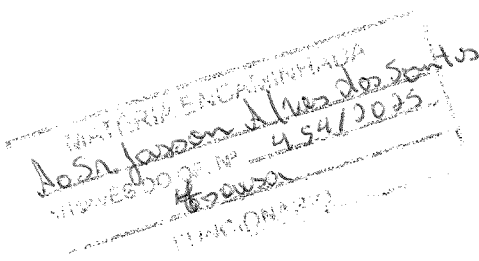 MATÉRIA ENCAMINHADA
Ao Sr. Jasson Alves dos Santos
ATRAVÉS DO OF. Nº 454/2025
FUNCIONÁRIO